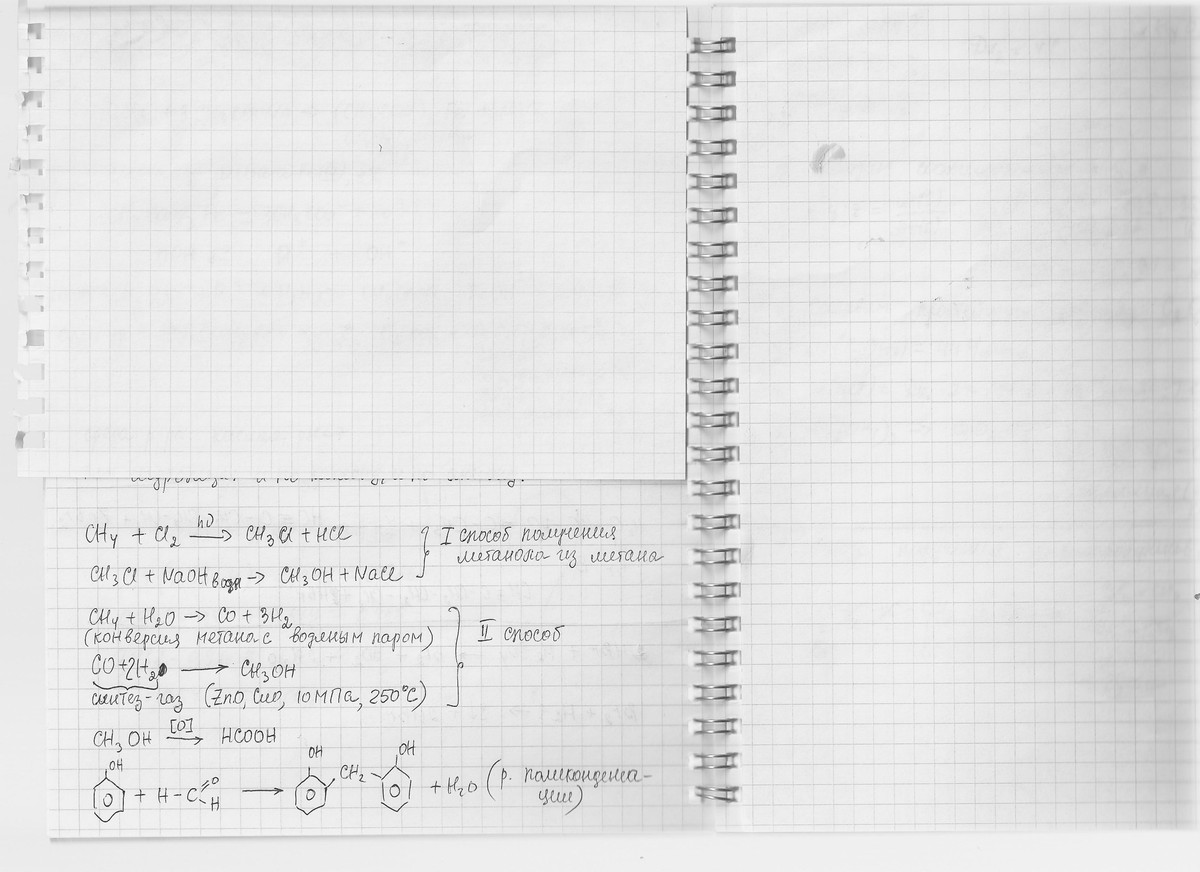 CH4 + Cl2 —hν→ CH3Cl + HCl
CH3Cl + NaOH водн → CH3OH + NaCl
I способ получения
метанола из метана
CH4 + H2O → CO + 3H2
(конверсия метана с водяным паром)
CO + 2H2 → CH3OH
синтез-газ (ZnO, CuO, 10 МПа, 250°C)
II способ
CH3OH —[O]→ HCOOH
OH + H-C O H → OH CH2 OH + H2O (р. поликонденса-
ции)